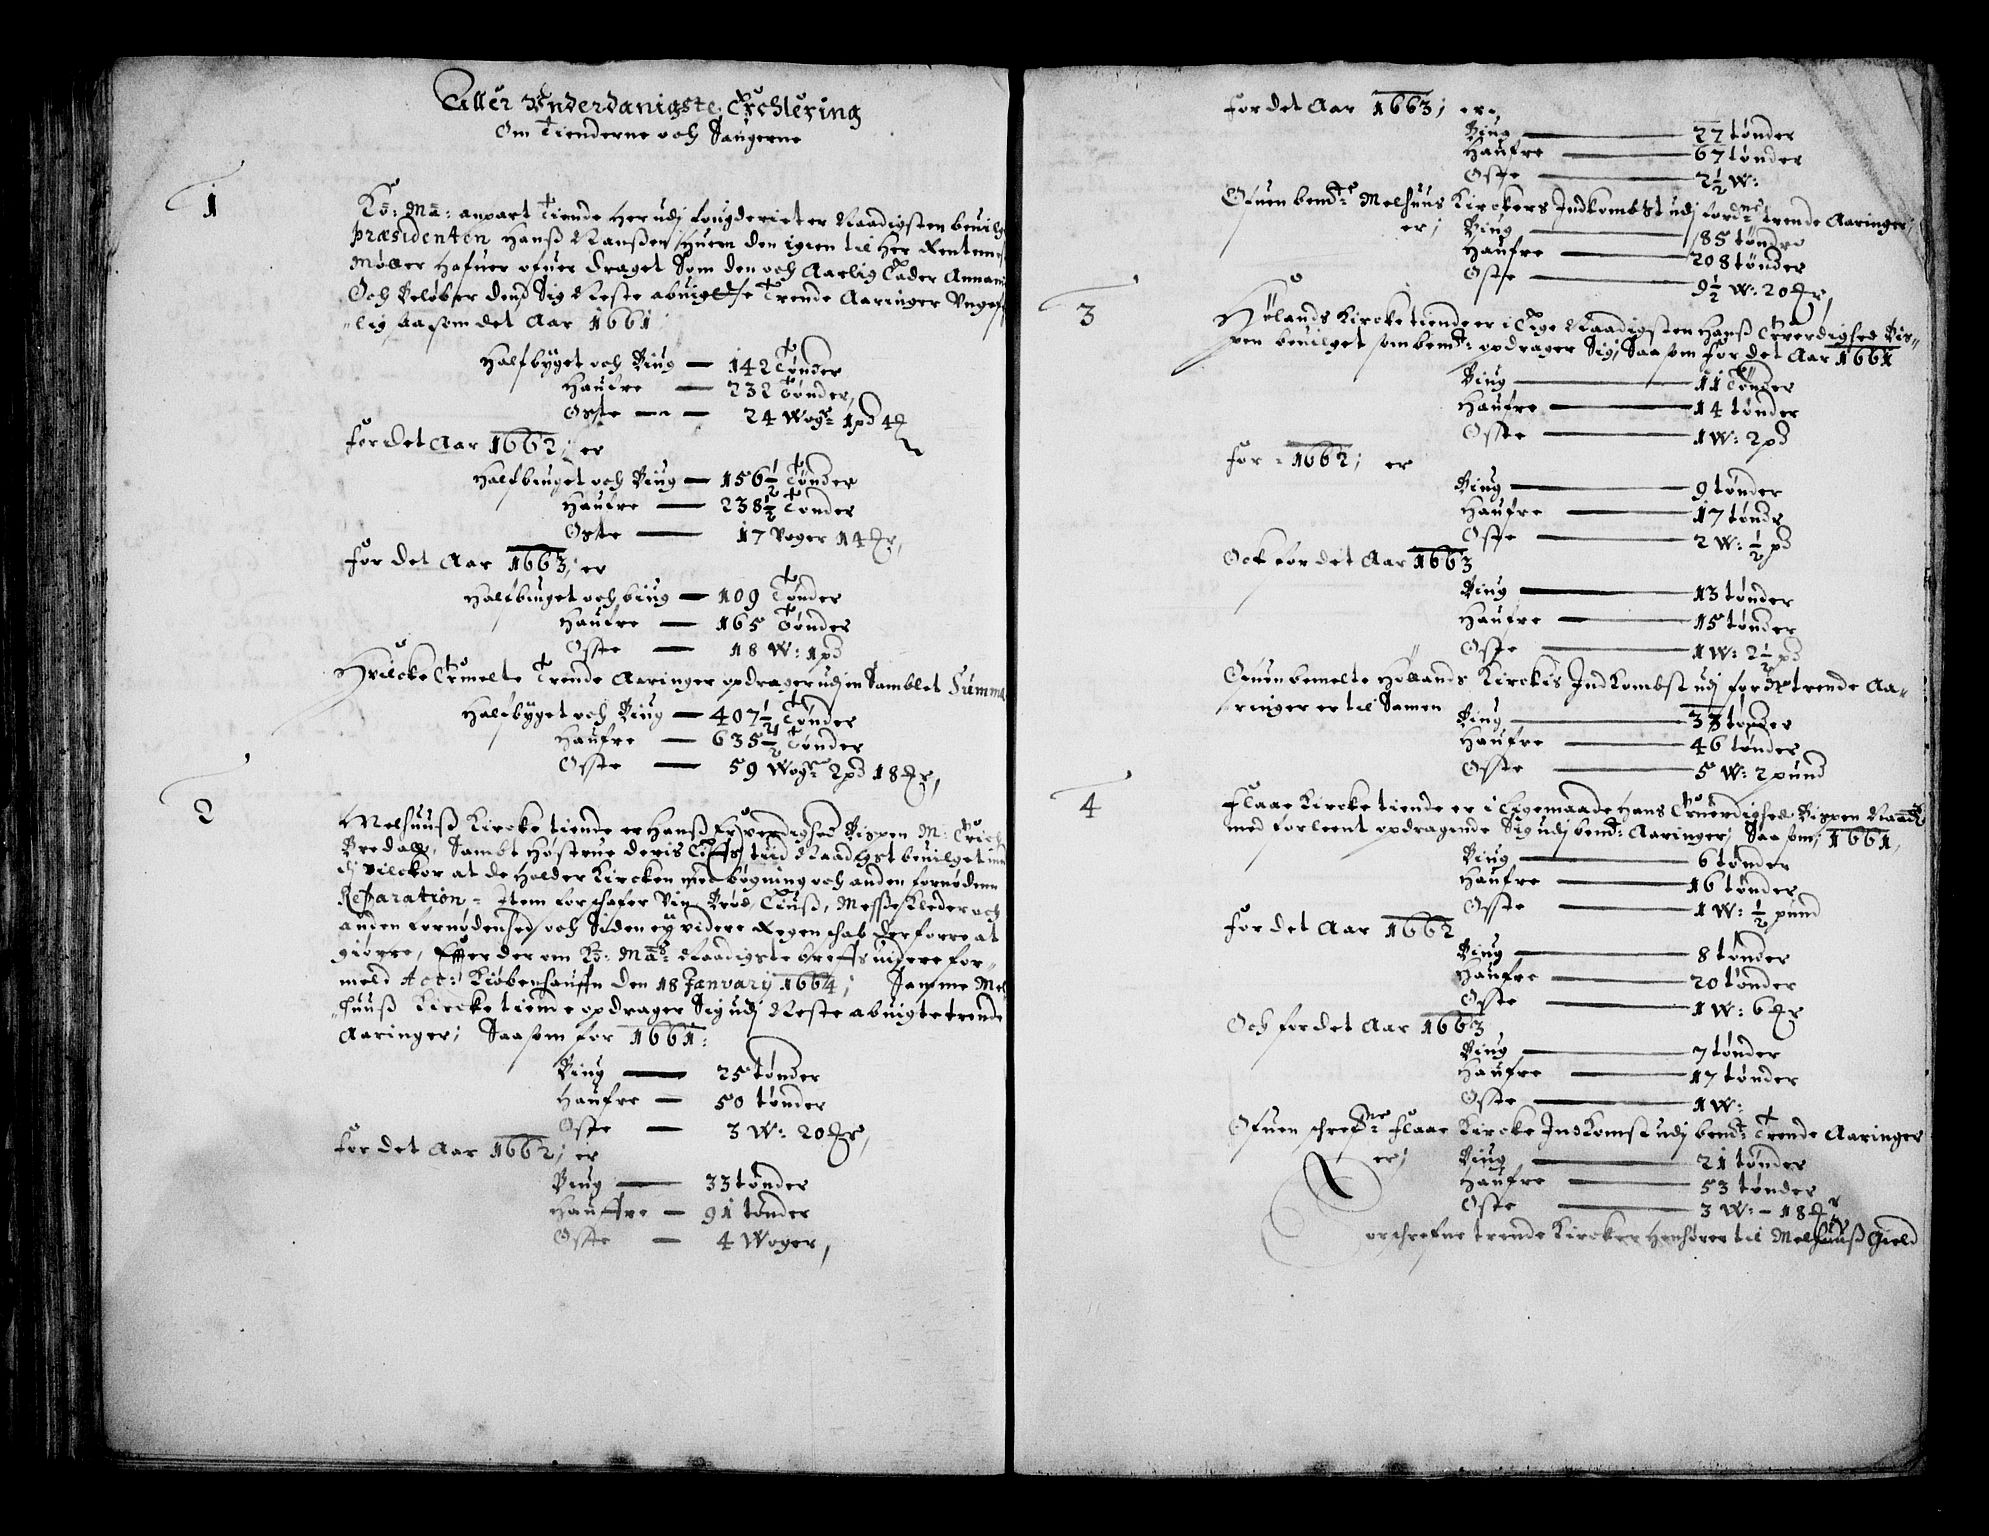 Aller Underdanigste Erchlering
Om Tienderne och Saugerne
1
Ko: Ma: anpart Tiende Her udj fougderiet er Naadigsten beuilg
Præsidenten Hanß Nanßen, Huem den igien til Her Rentemes
Møller Hafuer ofuer draget Som den och Aarlig Lader Annam
Och Beløber dend Sig Neste abuigte Trende Aaringer Ungef
lig saasom det Aar 1661
Halfbyget och Biug — 142 Tønder
Haufre — 232 Tønder,
Oste — 24 Wogr 1 pd 4 ℔
for det Aar 1662; er
Halfbiuget och Biug — 156½ Tønder
Haufre — 238½ Tønder
Oste — 17 Voger 14 ℔,
for det Aar 1663; er
Halfbiuget och biug — 109 Tønder
Haufre — 165 Tønder
Oste — 18 W: 1 pd
Hvilcke Ermelte Trende Aaringer opdrager udj en Samblet Summa
Halfbyget och Biug — 407½ Tønder
Haufre — 635½ Tønder
Oste — 59 Wogr 2 pd 18 ℔,
2
Melhuuß Kircke tiende er Hanß Erverdighed Bispen M: Erich
Bredall, Sambt Høstrue deris Liffs tiid Naadigst beuilget
dj vilckor at de Holder Kircken med bøgning och anden fornøden
Reparation - Item forschafer Vin, Brød, Liuß, Messe Kleder och
anden fornødenhed, och Siden ey videre Regenschab derforre at
giørre, Effter der om Ko: Mas: Naadigste breffs uidere for-
meld Act: Kiøbenhauffn den 18 January 1664; Samme Mel
huuß Kircke tiende opdrager Sig udj Neste abuigte trende
Aaringer; Saasom for 1661:
Biug — 25 tønder
Haufre — 50 tønder
Oste — 3 W: 20 ℔,
for det Aar 1662; er
Biug — 33 tønder
Hauffre — 91 tønder
Oste — 4 Woger,
for det Aar 1663; er
Biug — 27 tønder
Haufre — 67 tønder
Oste — 2½ W:
Ofuen bemte Melhuus Kirckers Indkombst udj fordne trende Aaringer;
er; Biug — 85 tønder
Haufre — 208 tønder
Oste — 9½ W: 20 ℔,
3
Hølands Kircke tiende er i Lige Naadigsten Hanß Ererdighed Bis-
pen beuilget som bemt: opdrager Sig, Saasom for det Aar 1661
Biug — 11 Tønder
Haufre — 14 tønder
Oste — 1 W: 2 pd
for 1662; er
Biug — 9 tønder
Haufre — 17 tønder
Oste — 2 W: ½ pd
Och for det Aar 1663
Biug — 13 tønder
Haufre — 15 tønder
Oste — 1 W: 2½ pd
Ofuen bemelte Høllands Kirckis Indkombst udj forde trende Aa-
ringer er til Samen Biug — 33 tønder
Haufre — 46 tønder
Oste — 5 W: 2 pund
4
Flaae Kircke tiende er i Ligemaade Hans Eruerdighed, Bispen Naad
med forleent opdragende Sig udj bemt: Aaringer; Saasom; 1661,
Biug — 6 tønder
Haufre — 16 tønder
Oste — 1 W: ½ pund
for det Aar 1662
Biug — 8 tønder
Haufre — 20 tønder
Oste — 1 W: 6 ℔
Och for det Aar 1663
Biug — 7 tønder
Haufre — 17 tønder
Oste — 1 W:
Ofuen schrefne Flaae Kircke Indkomst udj bemt: Trende Aaringer
er; Biug — 21 tønder
Haufre — 53 tønder
Oste — 3 W: - 18 ℔
Forschrefne trende Kircker Henhører til Melhuuß Gield